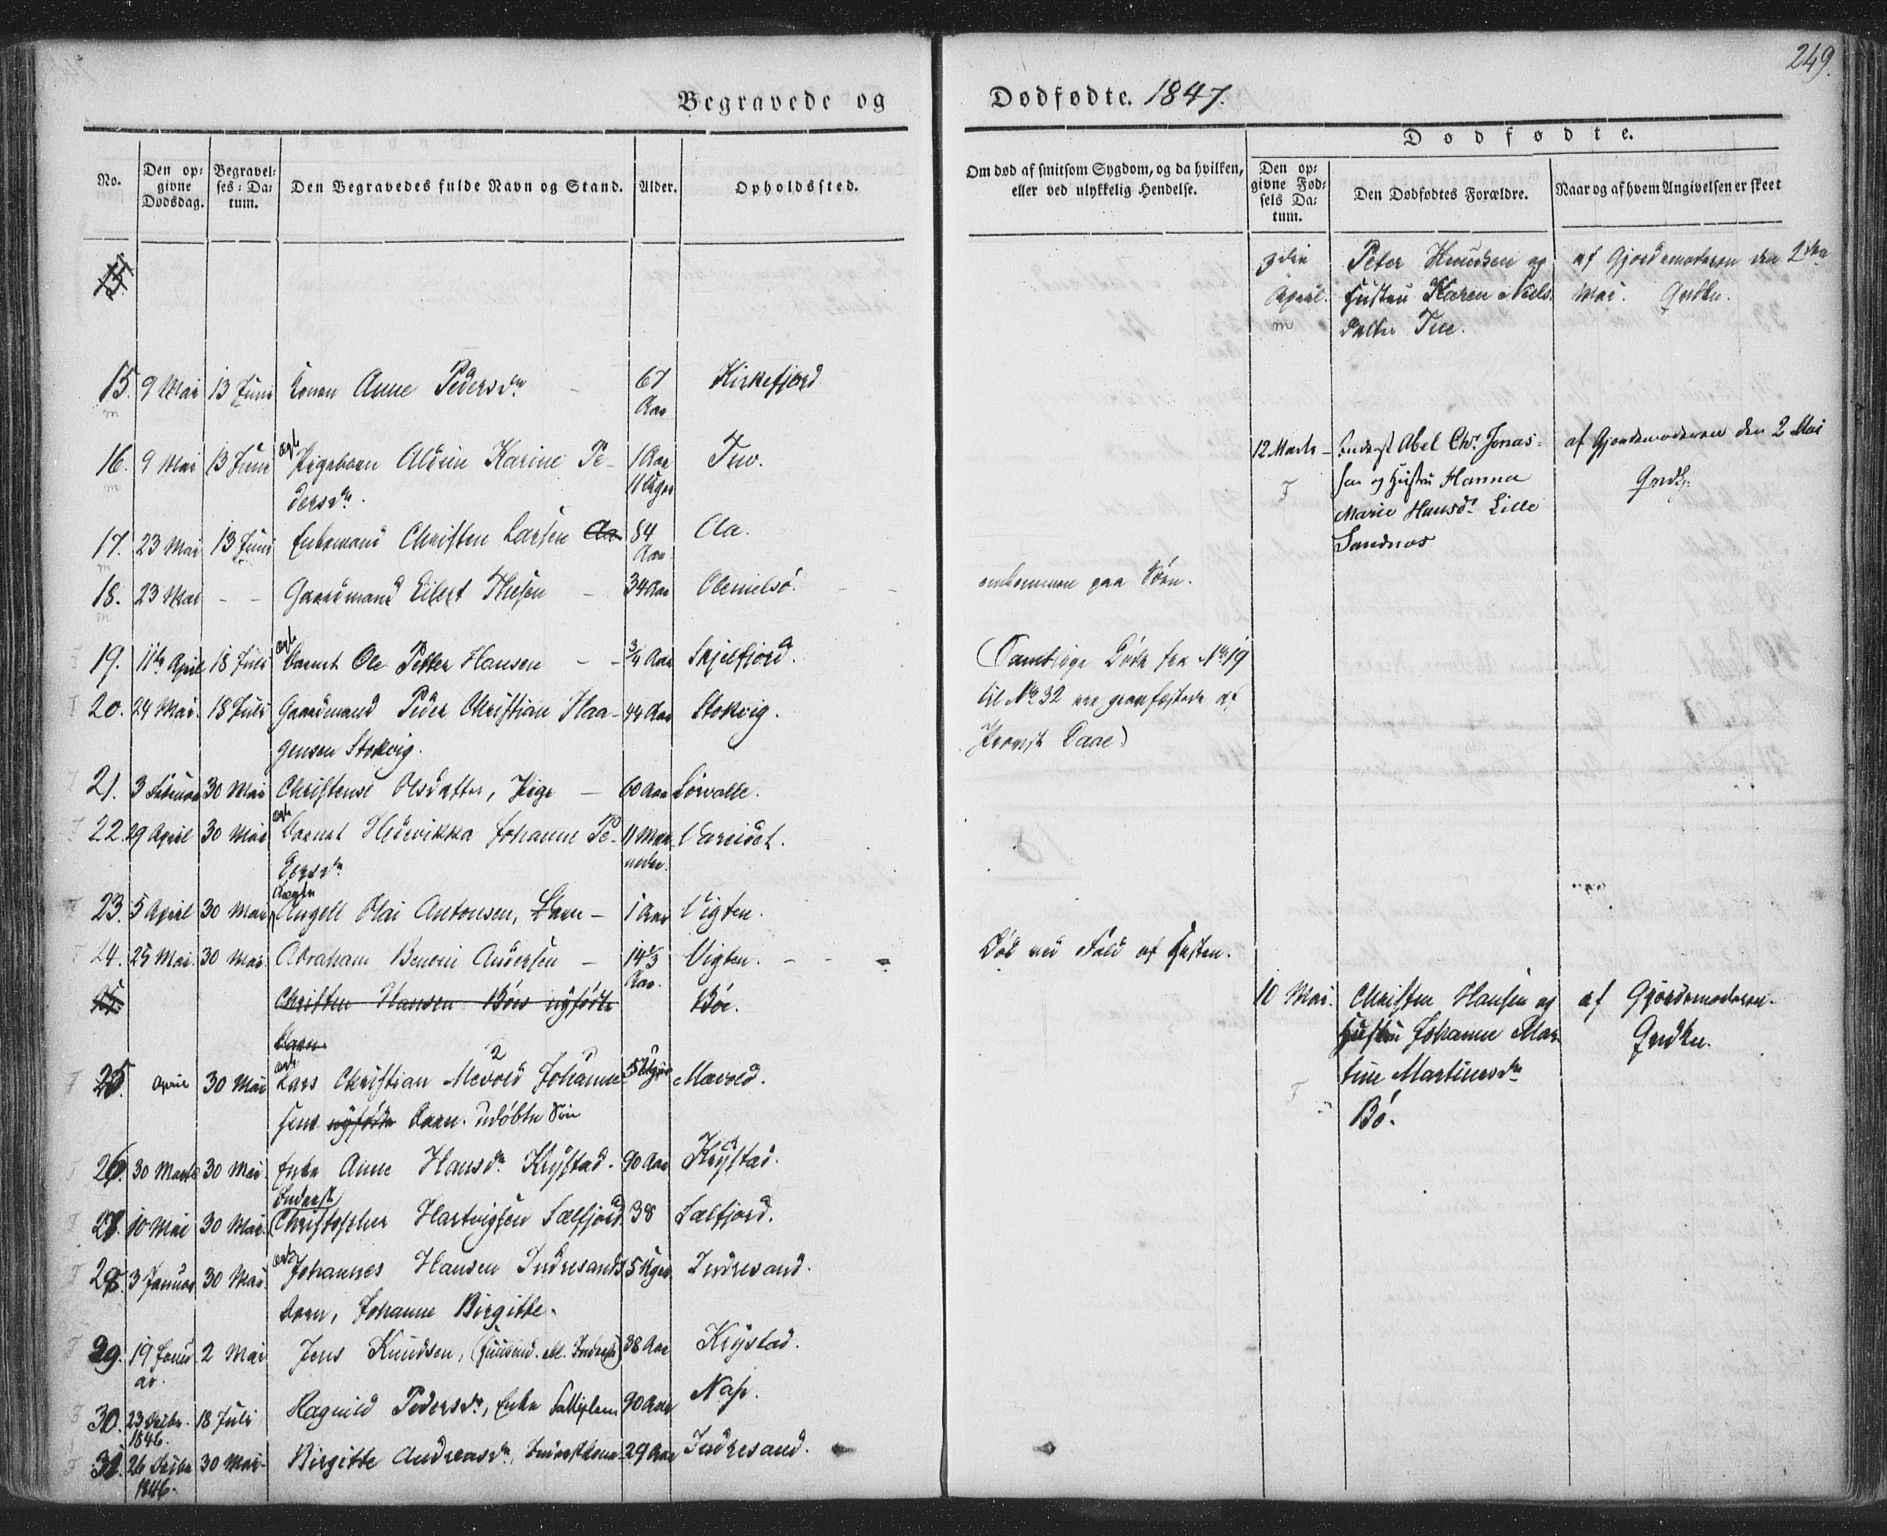 249.
Begravede og Dødfødte. 1847.
Dødfødte.
No.
Den opgivne Dødsdag.
Begravelses-Datum.
Den Begravedes fulde Navn og Stand.
Alder.
Opholdssted.
Om død af smitsom Sygdom, og da hvilken, eller ved ulykkelig Hendelse.
Den opgivne Fødsels Datum.
Den Dødfødtes Forældre.
Naar og af hvem Angivelsen er skeet
April. Peter Knudsen og af Gjordemoderen den 2den
m Hustru Karen Niels Mai.
datter Tue.
15. 9 Mai 13 Juni Konen Anne Pedersdr 67 Aar Kirkefjord
m
12 Marts Inderst Abel Chr. Jonas- af Gjordemoderen den 2 Mai
F sen og Hustru Hanna
Marie Hansdr Lille
Sandnæs
16. 9 Mai 13 Juni ægte Pigebarn Karine Pe- 1 Aar 11 Uger
m dersdr.
17. 23 Mai 13 Juni Enkemand Christen Larsen Aa 84 Aar Aa.
m
18. 23 Mai - - Gaardmand Eilert 34 Aar Olenielsø. omkommen paa Søen.
m
19. 11te April 18 Juli ægte Barnet Ole Petter Hansen - - 3/4 Aar Skjelfjord. (Samtlige Døde fra No 19
20. 24 Mai. 18 Juli Gaardmand Peder Christian Haa- 44 Aar Stokvig. til No 32 ere jordfæstede af
gensen Stokvig. Provst Daae)
21. 3 Februar 30 Mai Christense Olsdatter, Pige - 60 Aar Sørvalle.
22. 29 April 30 Mai ægte Barnet Hedevikka Johanne Pe- 11 Maaneder. Vareidet.
dersdr
23. 5 April 30 Mai Angell Olai Antonsen, Barn - 1 Aar Vigten.
24. 25 Mai. 30 Mai Abraham Benoni Andersen - 14 1/3 Aar. Vigten. - - Død ved Fald af Hesten.
25. Christen Hansen Bøes nyfødte Bøe.
Barn
10 Mai. Christen Hansen og af Gjordemoderen.
Hustru Johanne Mar-
F tine Martinusdr
Bø.
25. April 30 Mai Lars Christian Mevold Johanne- 5 Uger Mævold.
sens nyfødte Barn. udøbte Søn
26. 30 Marts 30 Mai Enke Anne Hansdr Krystad. 90 Aar Krystad.
27. 10 Mai 30 Mai. Inderst Christopher Hartvigsen Sælfjord 38 Sælfjord.
28. 3 Januar 30 Mai. ægte Johannes Hansen Indresands 5 Uger Indresand.
Barn, Johanne Birgitte.
29. 19 Januar. 2 Mai Jens Knudsen, 38 Aar Krystad.
30. 23 1846. 18 Juli Ragnild Pedersdr, Enke 90 Aar Næss.
31. 26 1846. 30 Mai Birgitte Andreasdr, 29 Aar Indresand.